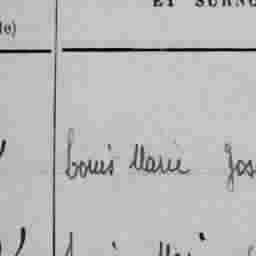 ET SURNO
le)
Louis Marie Jos